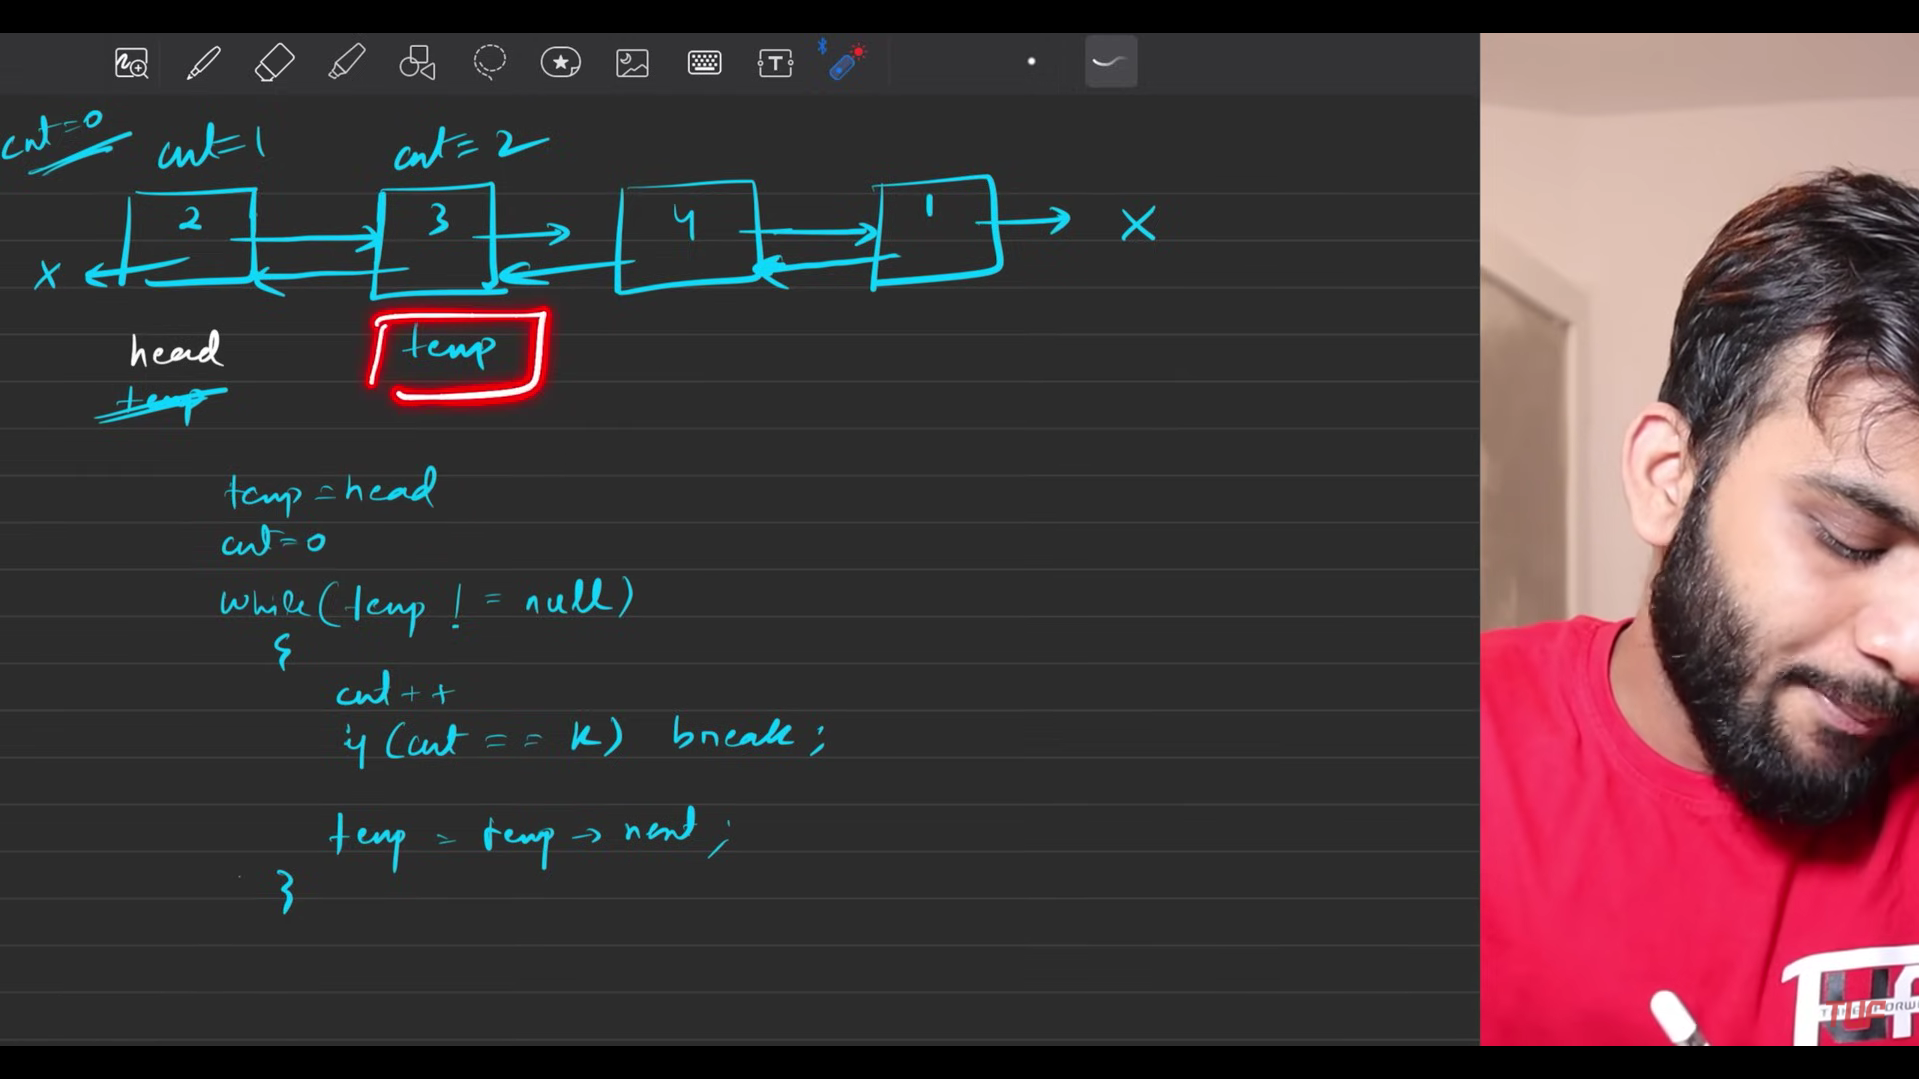 cnt=0 cnt=1 cnt=2
2 3 4 1 X
X
head temp
temp
temp = head
cnt=0
while(temp != null)
{
cnt++
if (cnt == k) break;
temp = temp → next;
}